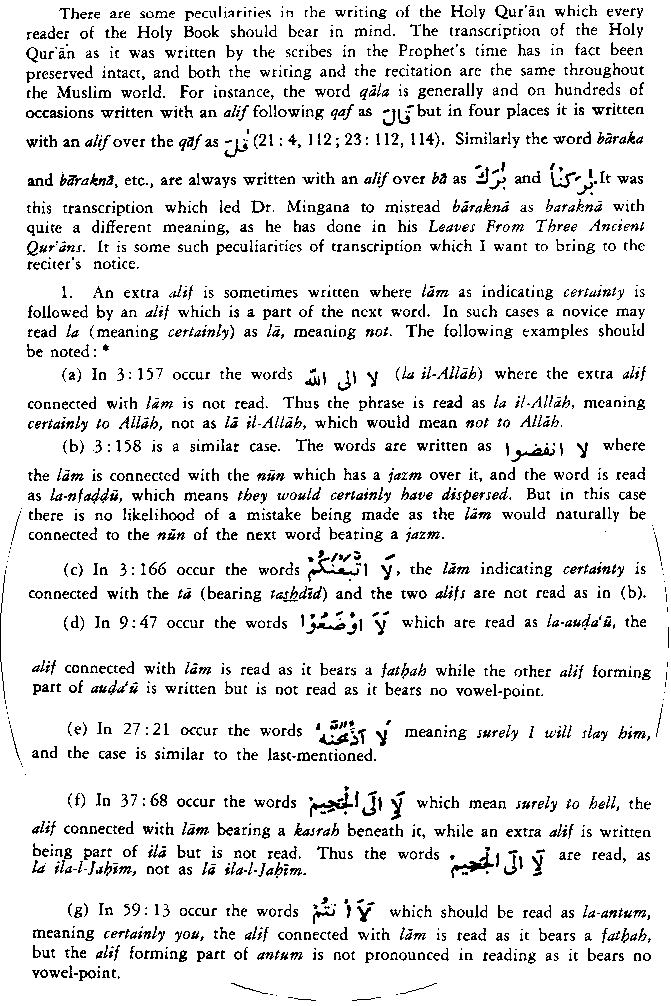 There are some peculiarities in the writing of the Holy Qur'ān which every
reader of the Holy Book should bear in mind. The transcription of the Holy
Qur'ān as it was written by the scribes in the Prophet's time has in fact been
preserved intact, and both the writing and the recitation are the same throughout
the Muslim world. For instance, the word qāla is generally and on hundreds of
occasions written with an alif following qaf as قال but in four places it is written
with an alif over the qāf as قٰل (21 : 4, 112 ; 23 : 112, 114). Similarly the word bāraka
and bāraknā, etc., are always written with an alif over bā as بٰرك and بٰركنا. It was
this transcription which led Dr. Mingana to misread bāraknā as baraknā with
quite a different meaning, as he has done in his Leaves From Three Ancient
Qur'āns. It is some such peculiarities of transcription which I want to bring to the
reciter's notice.
1. An extra alif is sometimes written where lām as indicating certainty is
followed by an alif which is a part of the next word. In such cases a novice may
read la (meaning certainly) as lā, meaning not. The following examples should
be noted : *
(a) In 3 : 157 occur the words لا الى الله (la il-Allāh) where the extra alif
connected with lām is not read. Thus the phrase is read as la il-Allāh, meaning
certainly to Allāh, not as lā il-Allāh, which would mean not to Allāh.
(b) 3 : 158 is a similar case. The words are written as لا انفضوا where
the lām is connected with the nūn which has a jazm over it, and the word is read
as la-nfaḍḍū, which means they would certainly have dispersed. But in this case
there is no likelihood of a mistake being made as the lām would naturally be
connected to the nūn of the next word bearing a jazm.
(c) In 3 : 166 occur the words لَا اتَّبَعْنٰكُمْ, the lām indicating certainty is
connected with the tā (bearing tashdīd) and the two alifs are not read as in (b).
(d) In 9 : 47 occur the words لَا اوْضَعُوْا which are read as la-auḍa'ū, the
alif connected with lām is read as it bears a fatḥah while the other alif forming
part of auḍa'ū is written but is not read as it bears no vowel-point.
(e) In 27 : 21 occur the words لَا اذْبَحَنَّهٗ meaning surely I will slay him,
and the case is similar to the last-mentioned.
(f) In 37 : 68 occur the words لَا الَى الْجَحِيْمِ which mean surely to hell, the
alif connected with lām bearing a kasrah beneath it, while an extra alif is written
being part of ilā but is not read. Thus the words لَا الَى الْجَحِيْمِ are read, as
la ila-l-Jaḥīm, not as lā ila-l-Jaḥīm.
(g) In 59 : 13 occur the words لَا انْتُمْ which should be read as la-antum,
meaning certainly you, the alif connected with lām is read as it bears a fatḥah,
but the alif forming part of antum is not pronounced in reading as it bears no
vowel-point.